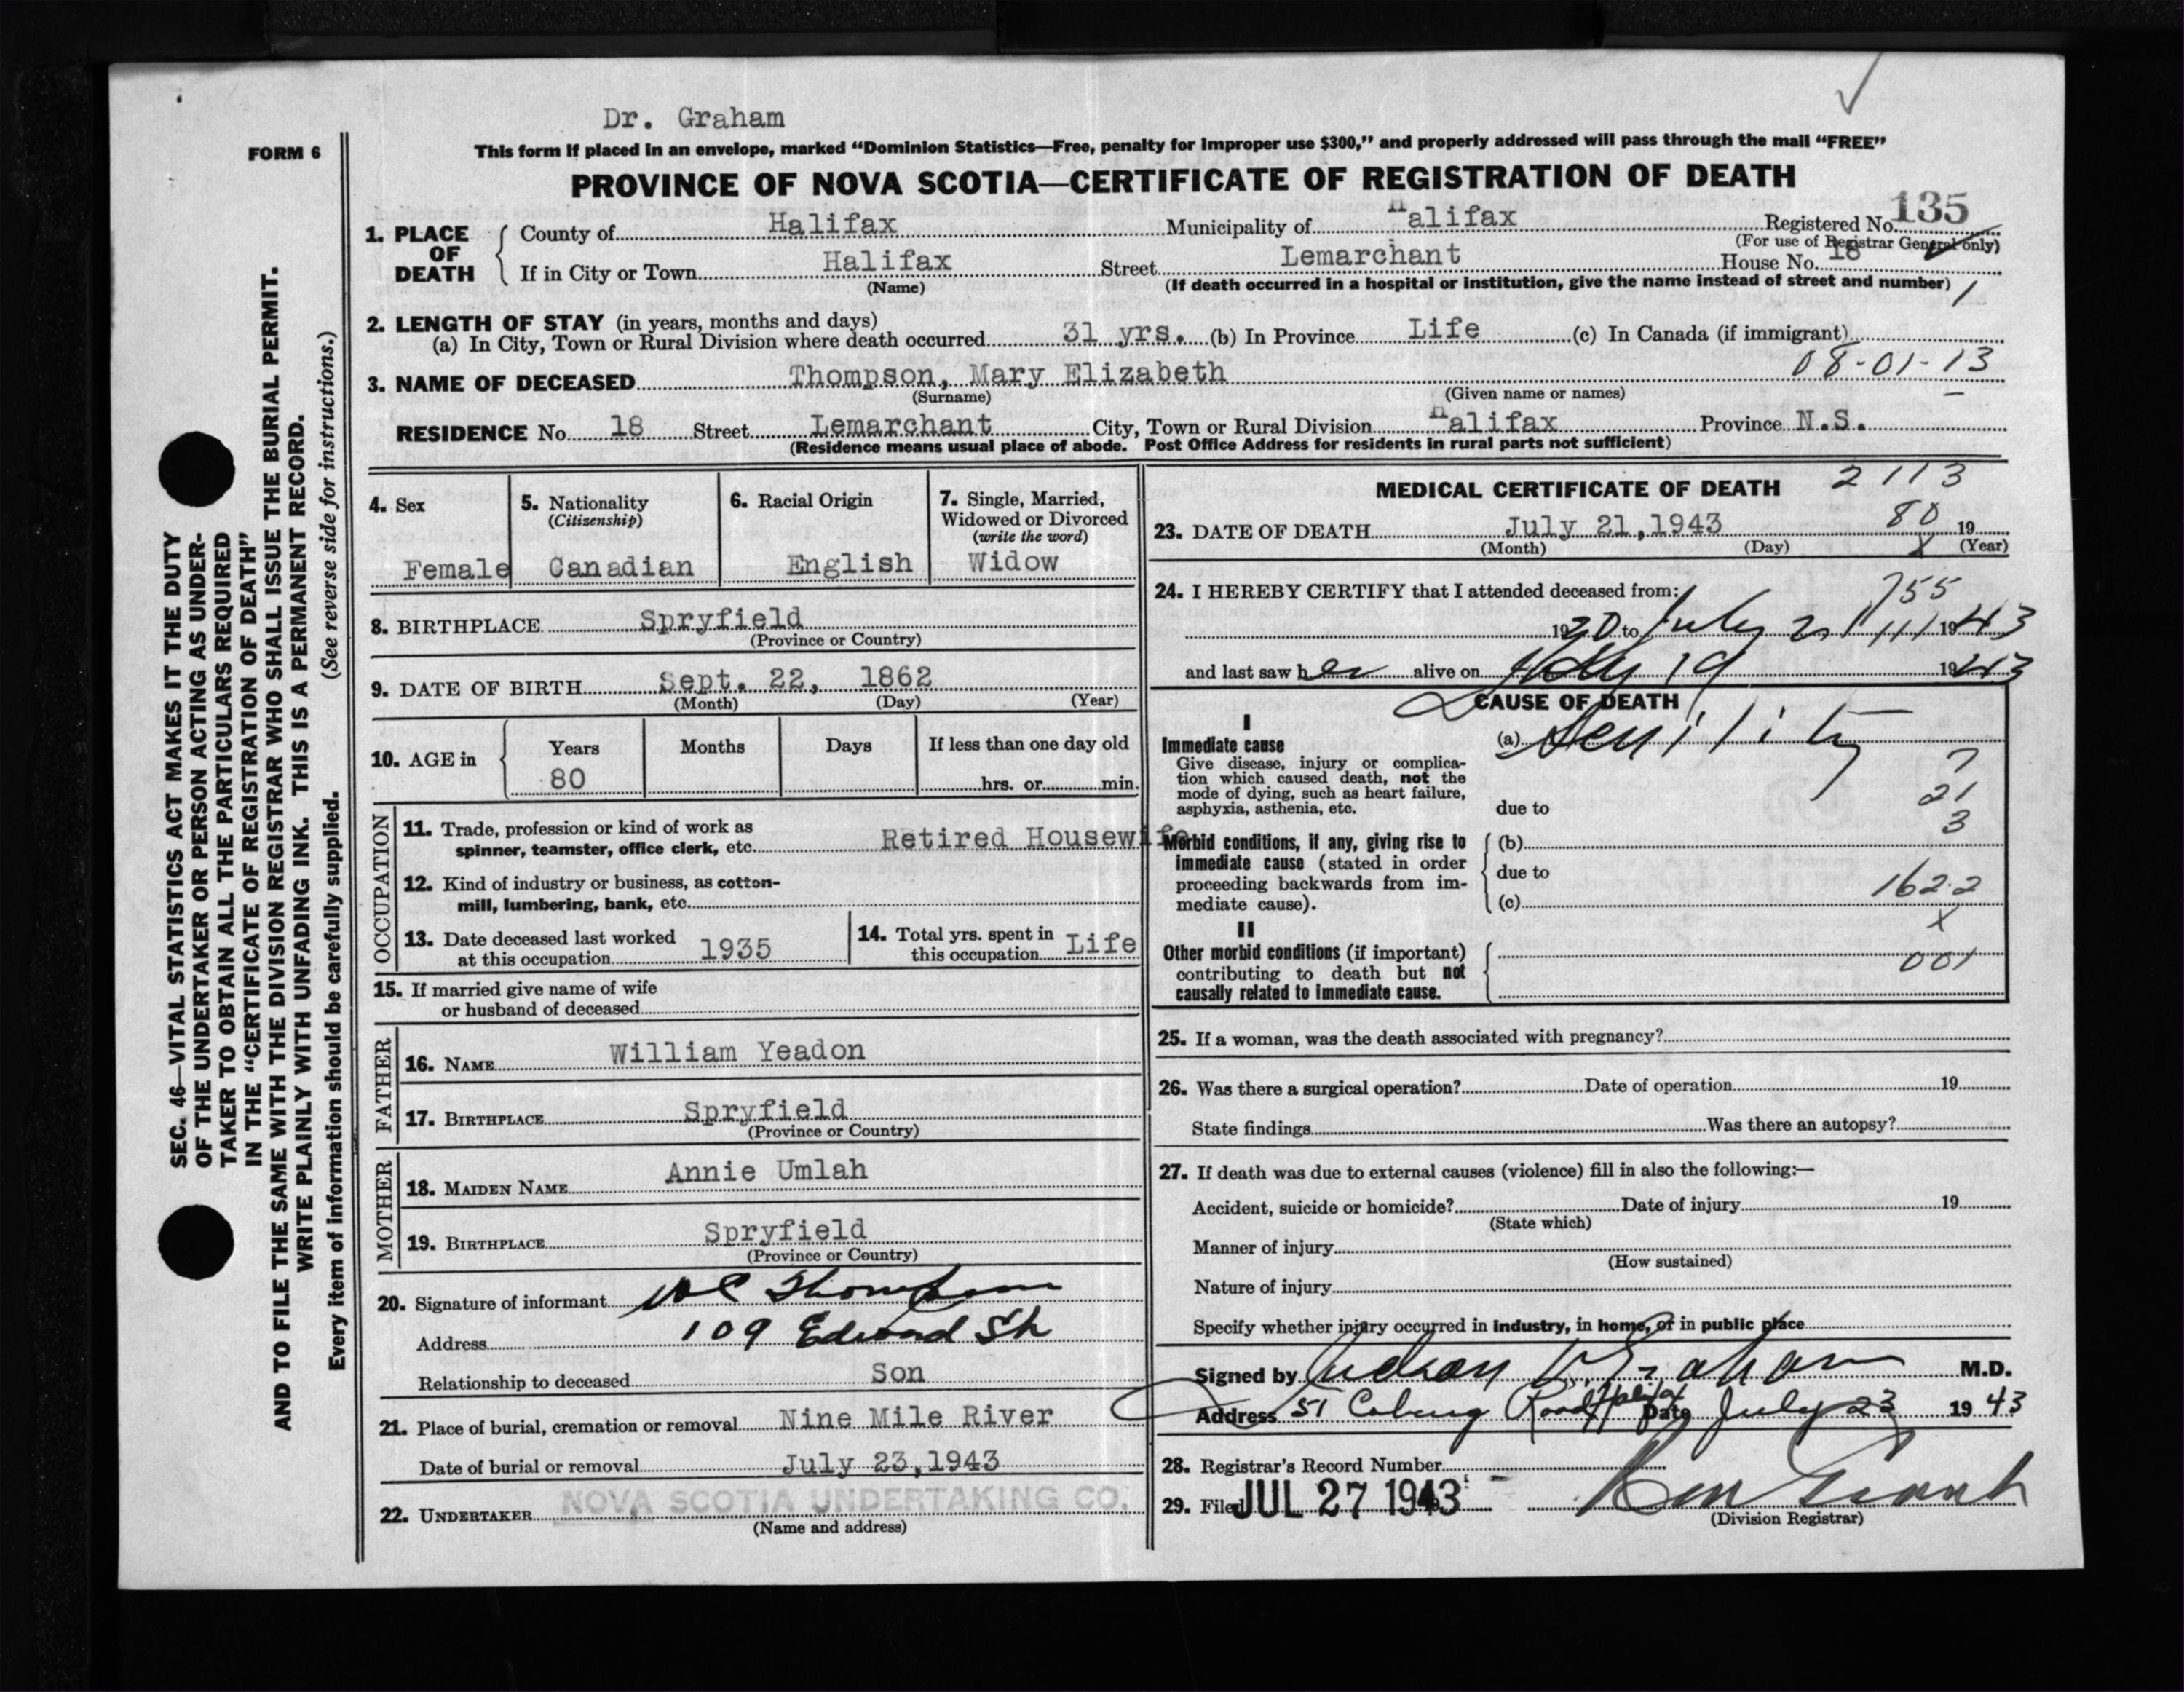 Dr. Graham
FORM 6
This form if placed in an envelope, marked “Dominion Statistics—Free, penalty for improper use $300,” and properly addressed will pass through the mail “FREE”
PROVINCE OF NOVA SCOTIA—CERTIFICATE OF REGISTRATION OF DEATH
1. PLACE OF DEATH
County of Halifax Municipality of Halifax Registered No. 135
(For use of Registrar General only)
If in City or Town Halifax Street Lemarchant House No. 18
(Name) (If death occurred in a hospital or institution, give the name instead of street and number) 1
2. LENGTH OF STAY (in years, months and days)
(a) In City, Town or Rural Division where death occurred 31 yrs. (b) In Province Life (c) In Canada (if immigrant)
08-01-13
3. NAME OF DECEASED Thompson, Mary Elizabeth
(Surname) (Given name or names)
RESIDENCE No. 18 Street Lemarchant City, Town or Rural Division Halifax Province N.S.
(Residence means usual place of abode. Post Office Address for residents in rural parts not sufficient)
4. Sex
Female
5. Nationality
(Citizenship)
Canadian
6. Racial Origin
English
7. Single, Married,
Widowed or Divorced
(write the word)
Widow
8. BIRTHPLACE Spryfield
(Province or Country)
9. DATE OF BIRTH Sept. 22, 1862
(Month) (Day) (Year)
10. AGE in Years Months Days If less than one day old
80 hrs. or min.
OCCUPATION
11. Trade, profession or kind of work as
spinner, teamster, office clerk, etc. Retired Housewife
12. Kind of industry or business, as cotton-
mill, lumbering, bank, etc.
13. Date deceased last worked
at this occupation 1935
14. Total yrs. spent in
this occupation Life
15. If married give name of wife
or husband of deceased
FATHER
16. NAME William Yeadon
17. BIRTHPLACE Spryfield
(Province or Country)
MOTHER
18. MAIDEN NAME Annie Umlah
19. BIRTHPLACE Spryfield
(Province or Country)
20. Signature of informant Thompson
Address 109 Edward St
Relationship to deceased Son
21. Place of burial, cremation or removal Nine Mile River
Date of burial or removal July 23,1943
22. UNDERTAKER NOVA SCOTIA UNDERTAKING CO.
(Name and address)
MEDICAL CERTIFICATE OF DEATH 2113
23. DATE OF DEATH July 21,1943 80 19
(Month) (Day) X (Year)
24. I HEREBY CERTIFY that I attended deceased from: 755
1930 to July 21 111 1943
and last saw her alive on July 19 1943
CAUSE OF DEATH
I
Immediate cause
Give disease, injury or complica-
tion which caused death, not the
mode of dying, such as heart failure,
asphyxia, asthenia, etc.
(a) Senility
7
21
3
due to
Morbid conditions, if any, giving rise to
immediate cause (stated in order
proceeding backwards from im-
mediate cause).
(b)
due to
(c)
162.2
X
II
Other morbid conditions (if important)
contributing to death but not
causally related to immediate cause.
001
25. If a woman, was the death associated with pregnancy?
26. Was there a surgical operation? Date of operation 19
State findings Was there an autopsy?
27. If death was due to external causes (violence) fill in also the following:—
Accident, suicide or homicide? Date of injury 19
(State which)
Manner of injury
(How sustained)
Nature of injury
Specify whether injury occurred in industry, in home, or in public place
Signed by Judson V. Graham M.D.
Address 51 Coburg Road Halifax Date July 23 1943
28. Registrar's Record Number
29. Filed JUL 27 1943
(Division Registrar)
SEC. 46—VITAL STATISTICS ACT MAKES IT THE DUTY
OF THE UNDERTAKER OR PERSON ACTING AS UNDER-
TAKER TO OBTAIN ALL THE PARTICULARS REQUIRED
IN THE “CERTIFICATE OF REGISTRATION OF DEATH”
AND TO FILE THE SAME WITH THE DIVISION REGISTRAR WHO SHALL ISSUE THE BURIAL PERMIT.
WRITE PLAINLY WITH UNFADING INK. THIS IS A PERMANENT RECORD.
Every item of information should be carefully supplied. (See reverse side for instructions.)